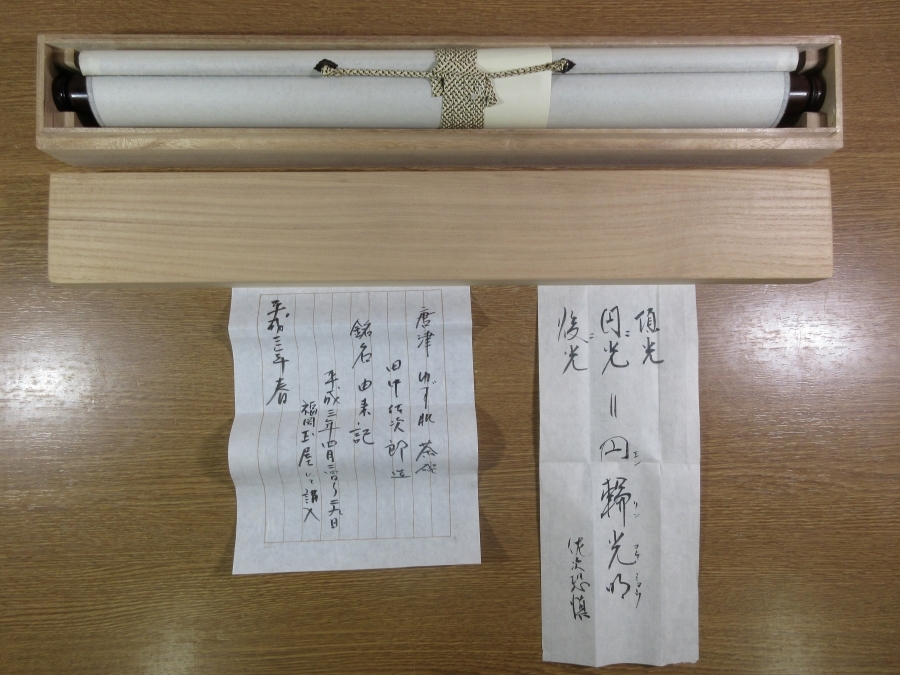 頂光
円光＝円輪光明
ニ
エン リン コウ ミョウ
後光
ニ
佐次恐慎
唐津 ゆず肌 茶碗
田中佐次郎 造
銘名 由来記
平成三年四月
福岡玉屋にて購入
平成三年春